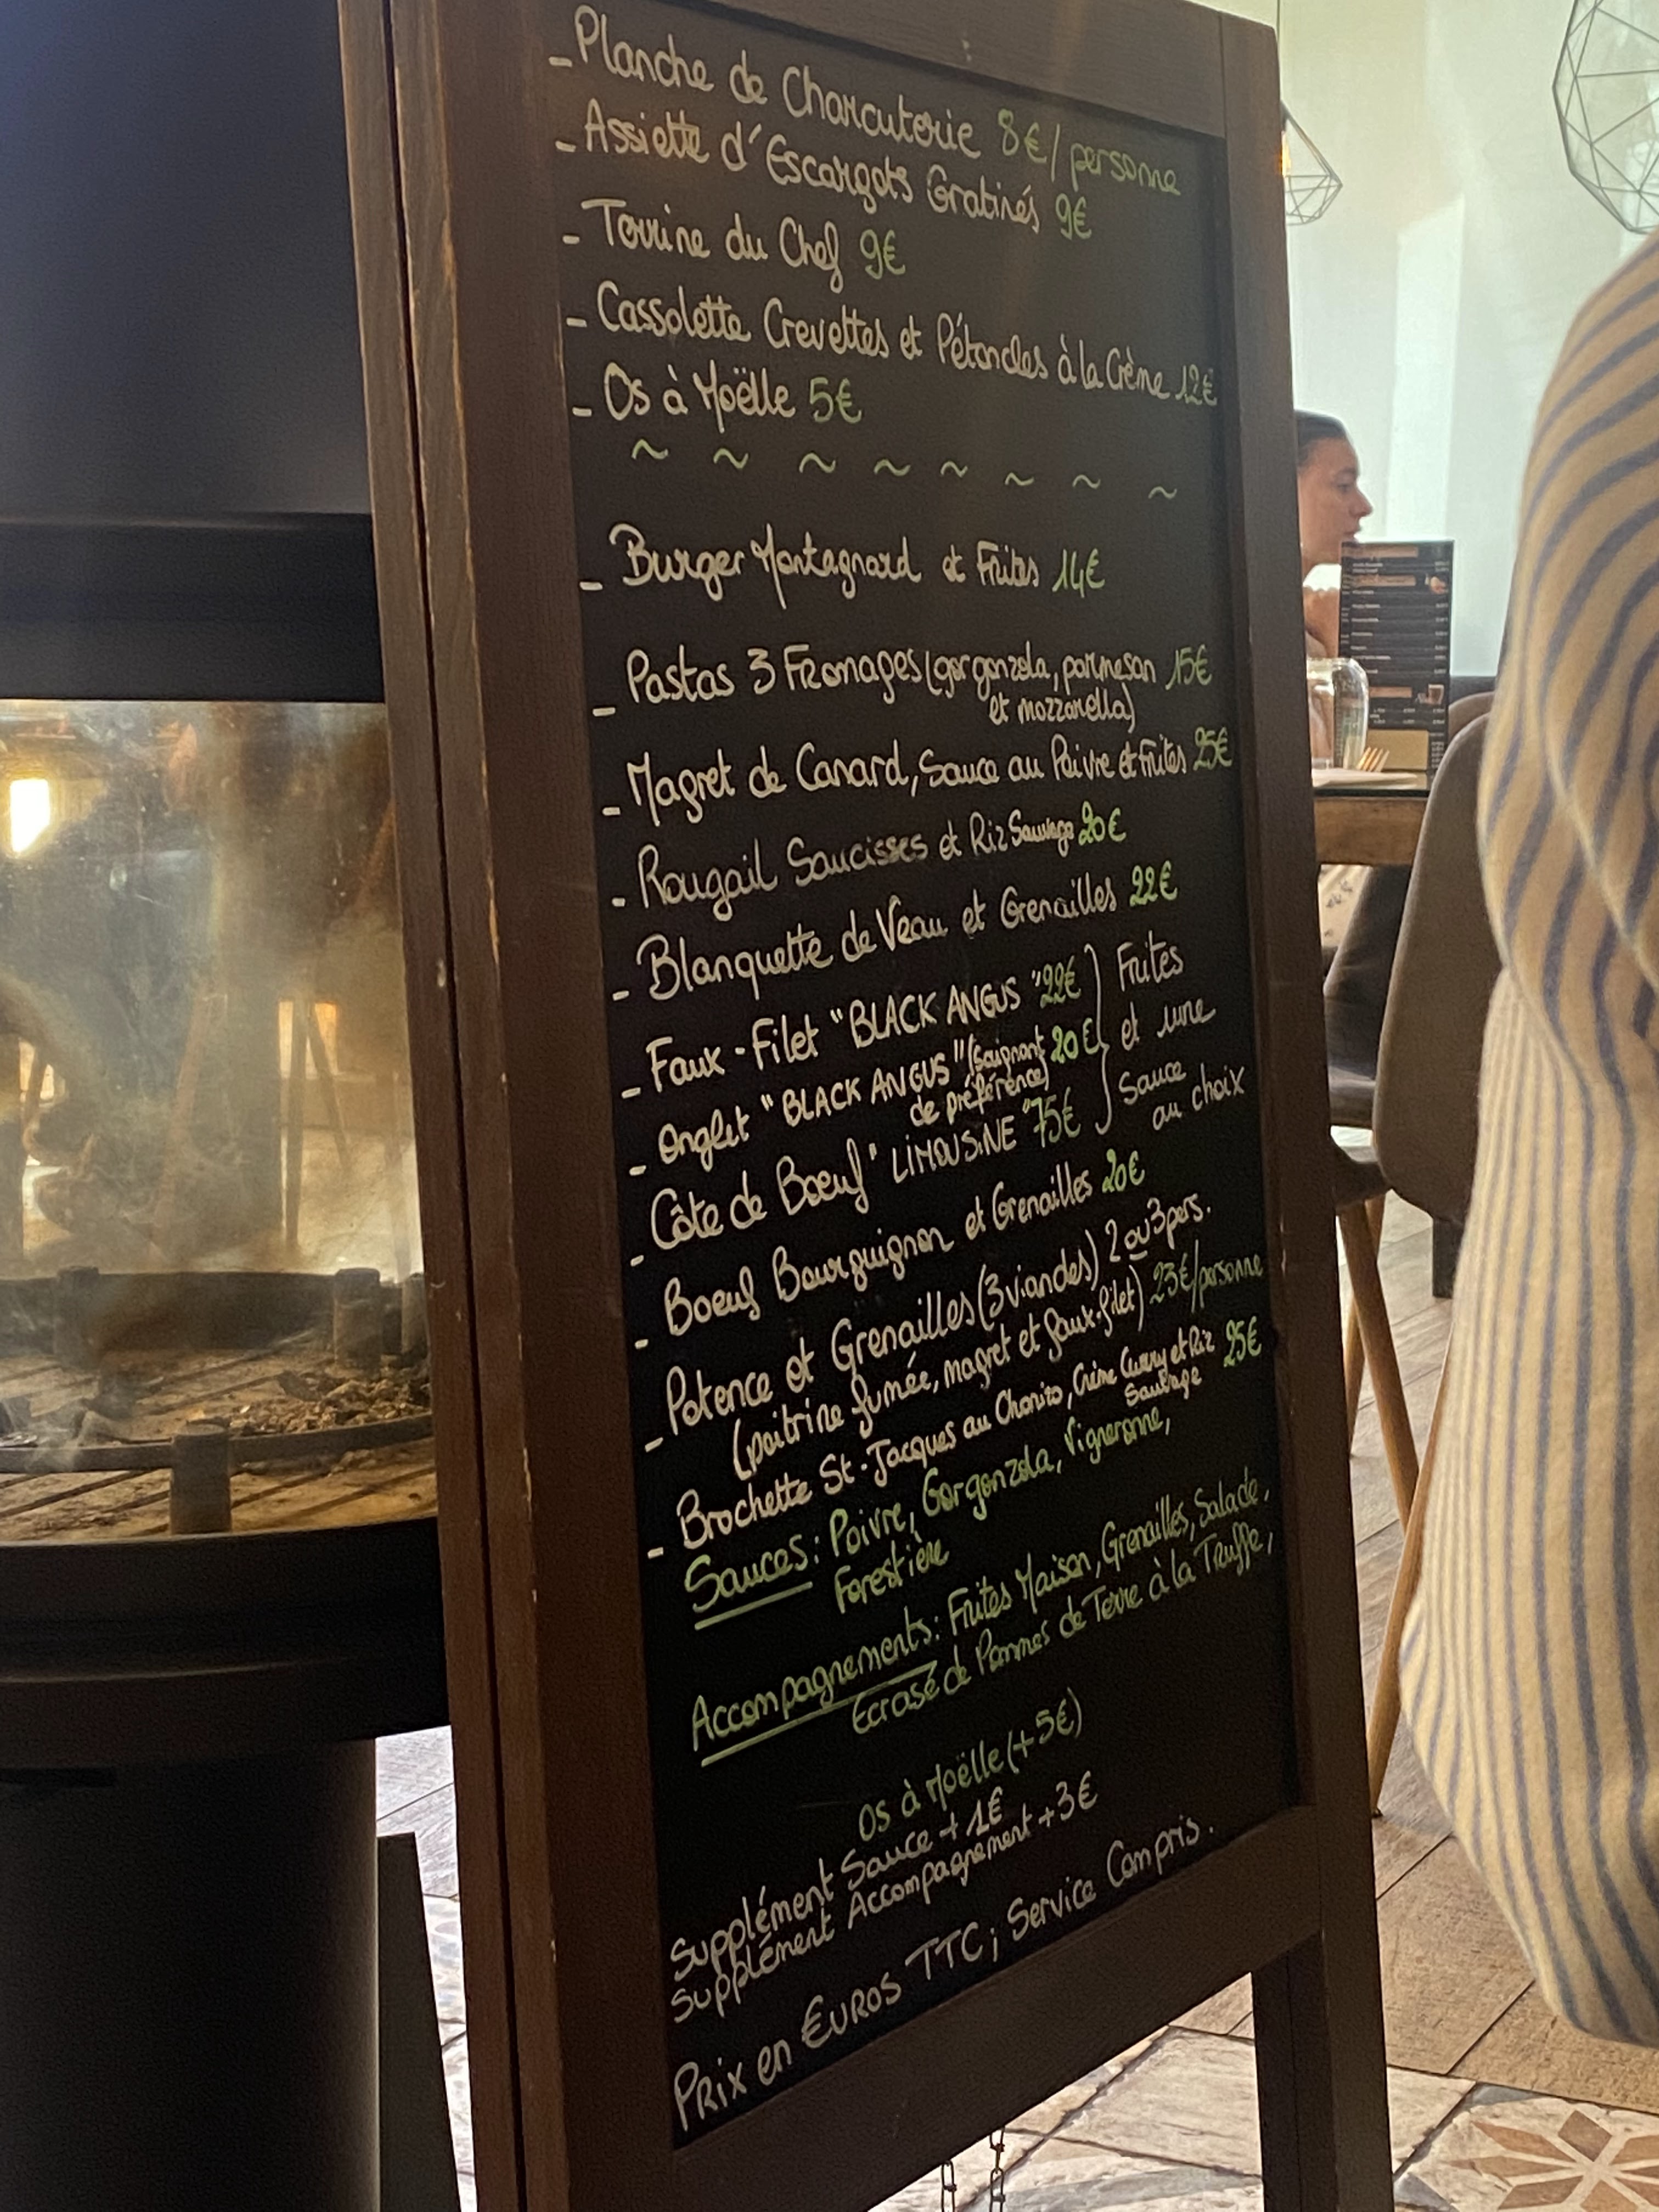 - Planche de Charcuterie 8€/personne
- Assiette d'Escargots Gratinés 9€
- Terrine du Chef 9€
- Cassolette Crevettes et Pétoncles à la Crème 12€
- Os à Moëlle 5€
~ ~ ~ ~ ~ ~ ~ ~
- Burger Montagnard et Frites 14€
- Pastas 3 Fromages (gorgonzola, parmesan 15€
et mozzarella)
- Magret de Canard, Sauce au Poivre et Frites 25€
- Rougail Saucisses et Riz Sauvage 20€
- Blanquette de Veau et Grenailles 22€
- Faux-Filet "BLACK ANGUS" 22€
- Onglet "BLACK ANGUS" (saignant 20€
de préférence)
- Côte de Boeuf "LIMOUSINE" 75€
Frites
et une
Sauce
au choix
- Boeuf Bourguignon et Grenailles 20€
- Potence et Grenailles (3 viandes) 2 ou 3 pers.
(poitrine fumée, magret et faux-filet) 23€/personne
- Brochette St-Jacques au Chorizo, Crème Curry et Riz 25€
Sauvage
Sauces: Poivre, Gorgonzola, Vigneronne,
Forestière
Accompagnements: Frites Maison, Grenailles, Salade,
Ecrasé de Pommes de Terre à la Truffe,
Os à Moëlle (+5€)
Supplément Sauce +1€
Supplément Accompagnement +3€
Prix en €uros TTC; Service Compris.